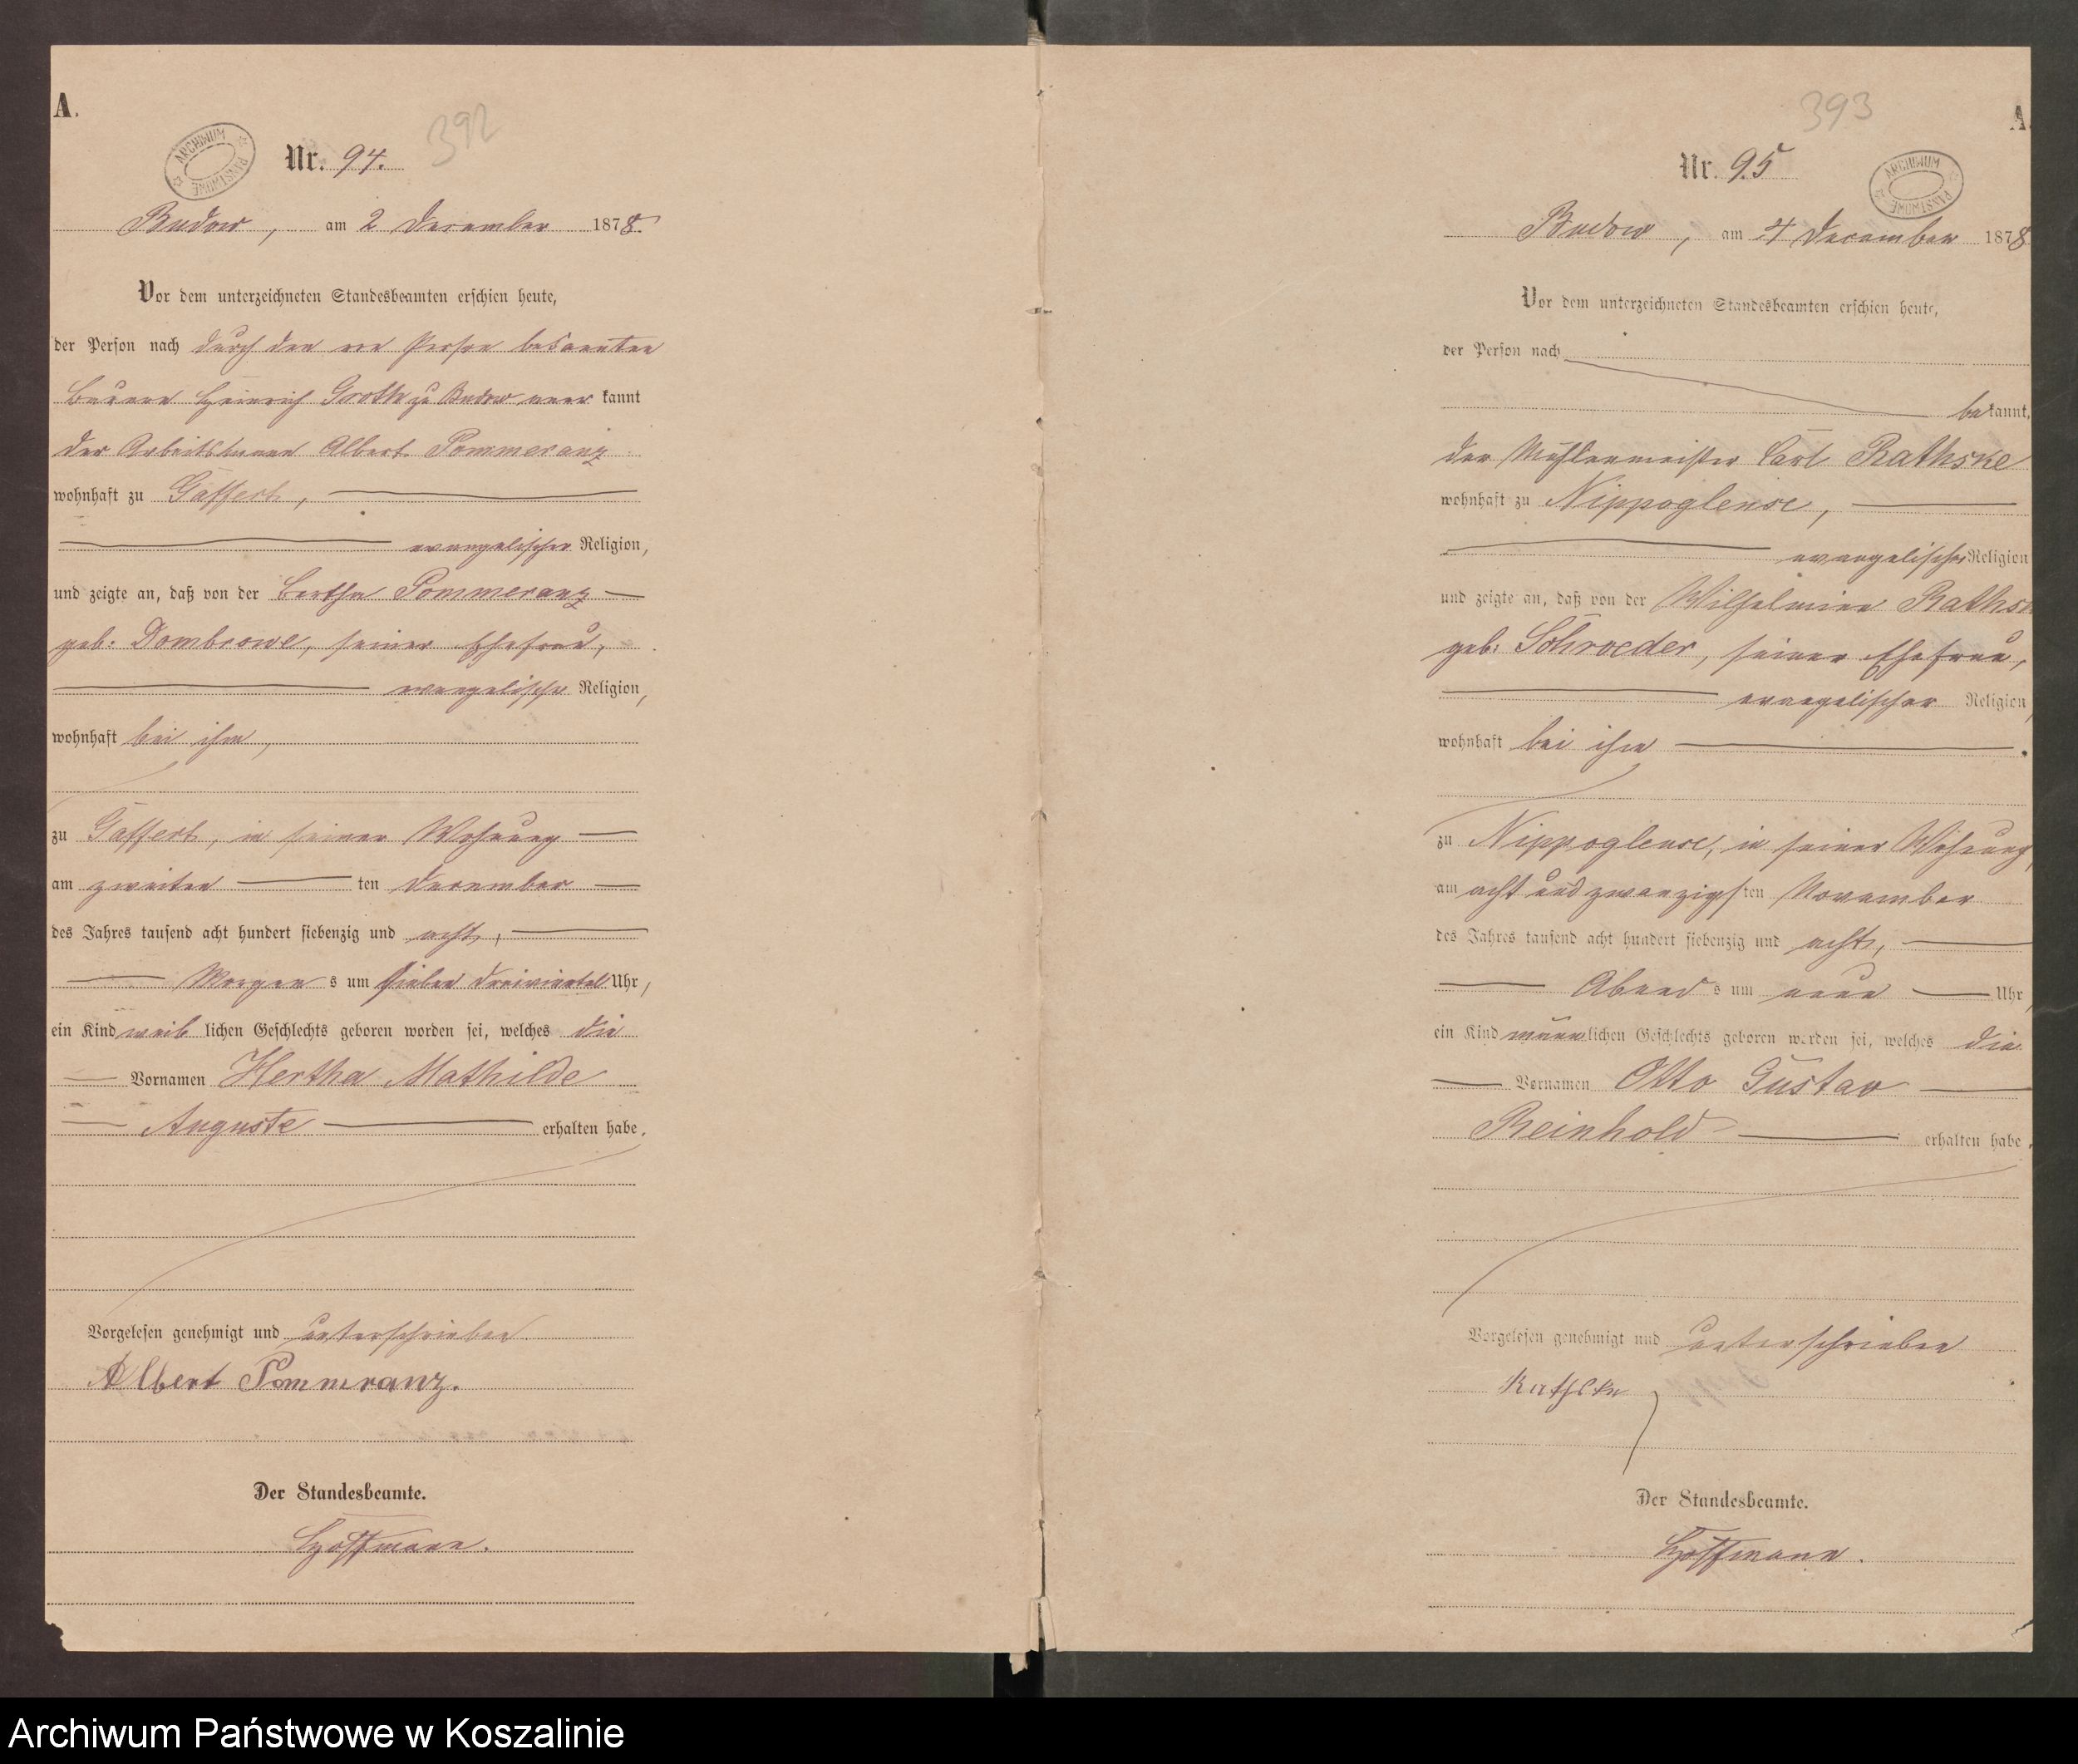 A.
ARCHIWUM PAŃSTWOWE
Nr. 94.
392
Budow, am 2 December 1878.
Vor dem unterzeichneten Standesbeamten erschien heute,
der Person nach durch den von Person bekannten
Bauern Heinrich Groth zu Budow aner kannt
der Arbeitsmann Albert Pommeranz
wohnhaft zu Gaffert,
evangelischer Religion,
und zeigte an, daß von der Bertha Pommeranz
geb. Dombrowe, seiner Ehefrau,
evangelischer Religion,
wohnhaft bei ihm,
zu Gaffert, in seiner Wohnung
am zweiten ten December
des Jahres tausend acht hundert siebenzig und acht,
Morgen s um sieben dreiviertel Uhr,
ein Kind weib lichen Geschlechts geboren worden sei, welches die
Vornamen Hertha Mathilde
Auguste erhalten habe.
Vorgelesen genehmigt und unterschrieben
Albert Pommranz.
Der Standesbeamte.
Hoffmann.
393
A.
Nr. 95
ARCHIWUM PAŃSTWOWE
Budow, am 4 December 1878
Vor dem unterzeichneten Standesbeamten erschien heute,
der Person nach
be kannt,
der Mühlenmeister Carl Rathske
wohnhaft zu Nippoglense,
evangelischer Religion
und zeigte an, daß von der Wilhelmine Rathsk
geb. Schroeder, seiner Ehefrau,
evangelischer Religion,
wohnhaft bei ihm
zu Nippoglense, in seiner Wohnung,
am acht und zwanzigs ten November
des Jahres tausend acht hundert siebenzig und acht,
Abend s um neun Uhr,
ein Kind männ lichen Geschlechts geboren worden sei, welches die
Vornamen Otto Gustav
Reinhold erhalten habe.
Vorgelesen genehmigt und unterschrieben
Rathske
Der Standesbeamte.
Hoffmann.
Archiwum Państwowe w Koszalinie